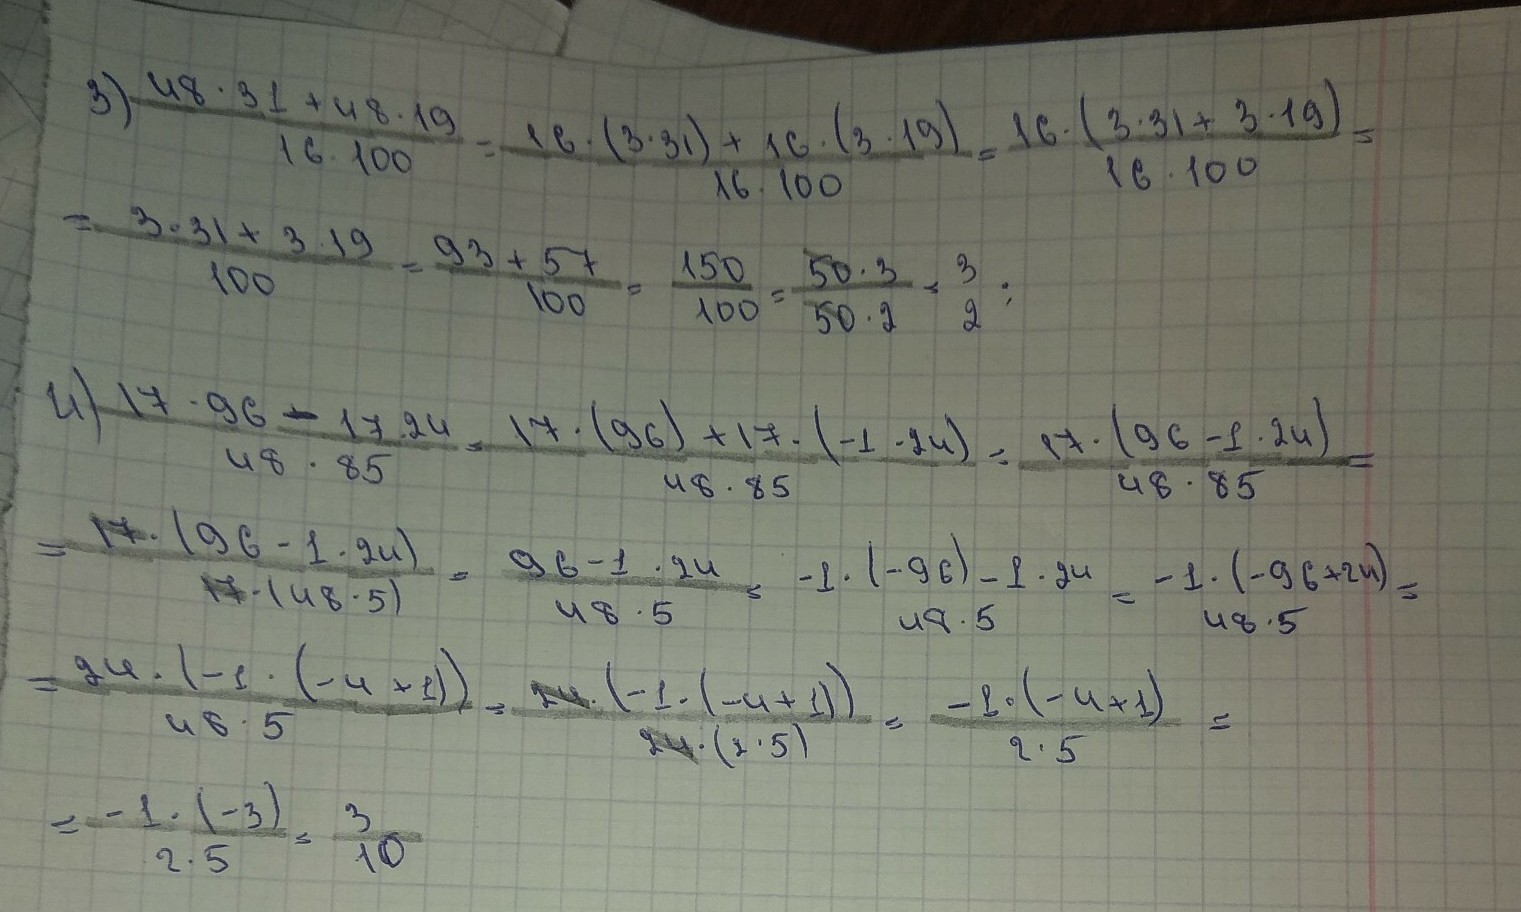 3) (48·31+48·19)/(16·100) = (16·(3·31)+16·(3·19))/(16·100) = (16·(3·31+3·19))/(16·100) =
= (3·31+3·19)/100 = (93+57)/100 = 150/100 = (50·3)/(50·2) = 3/2 ;
4) (17·96-17·24)/(48·85) = (17·(96)+17·(-1·24))/(48·85) = (17·(96-1·24))/(48·85) =
= (17·(96-1·24))/(17·(48·5)) = (96-1·24)/(48·5) = (-1·(-96)-1·24)/(48·5) = (-1·(-96+24))/(48·5) =
= (24·(-1·(-4+1)))/(48·5) = (24·(-1·(-4+1)))/(24·(2·5)) = (-1·(-4+1))/(2·5) =
= (-1·(-3))/(2·5) = 3/10